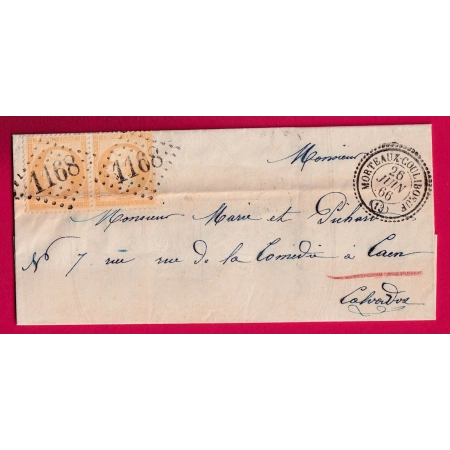 1168 1168
MORTEAUX-COULIBOEUF
26
JUIN
66
(13)
Monsieur
Monsieur Marie et Pichard
N° 7 rue rue de la Comédie à Caen
Calvados